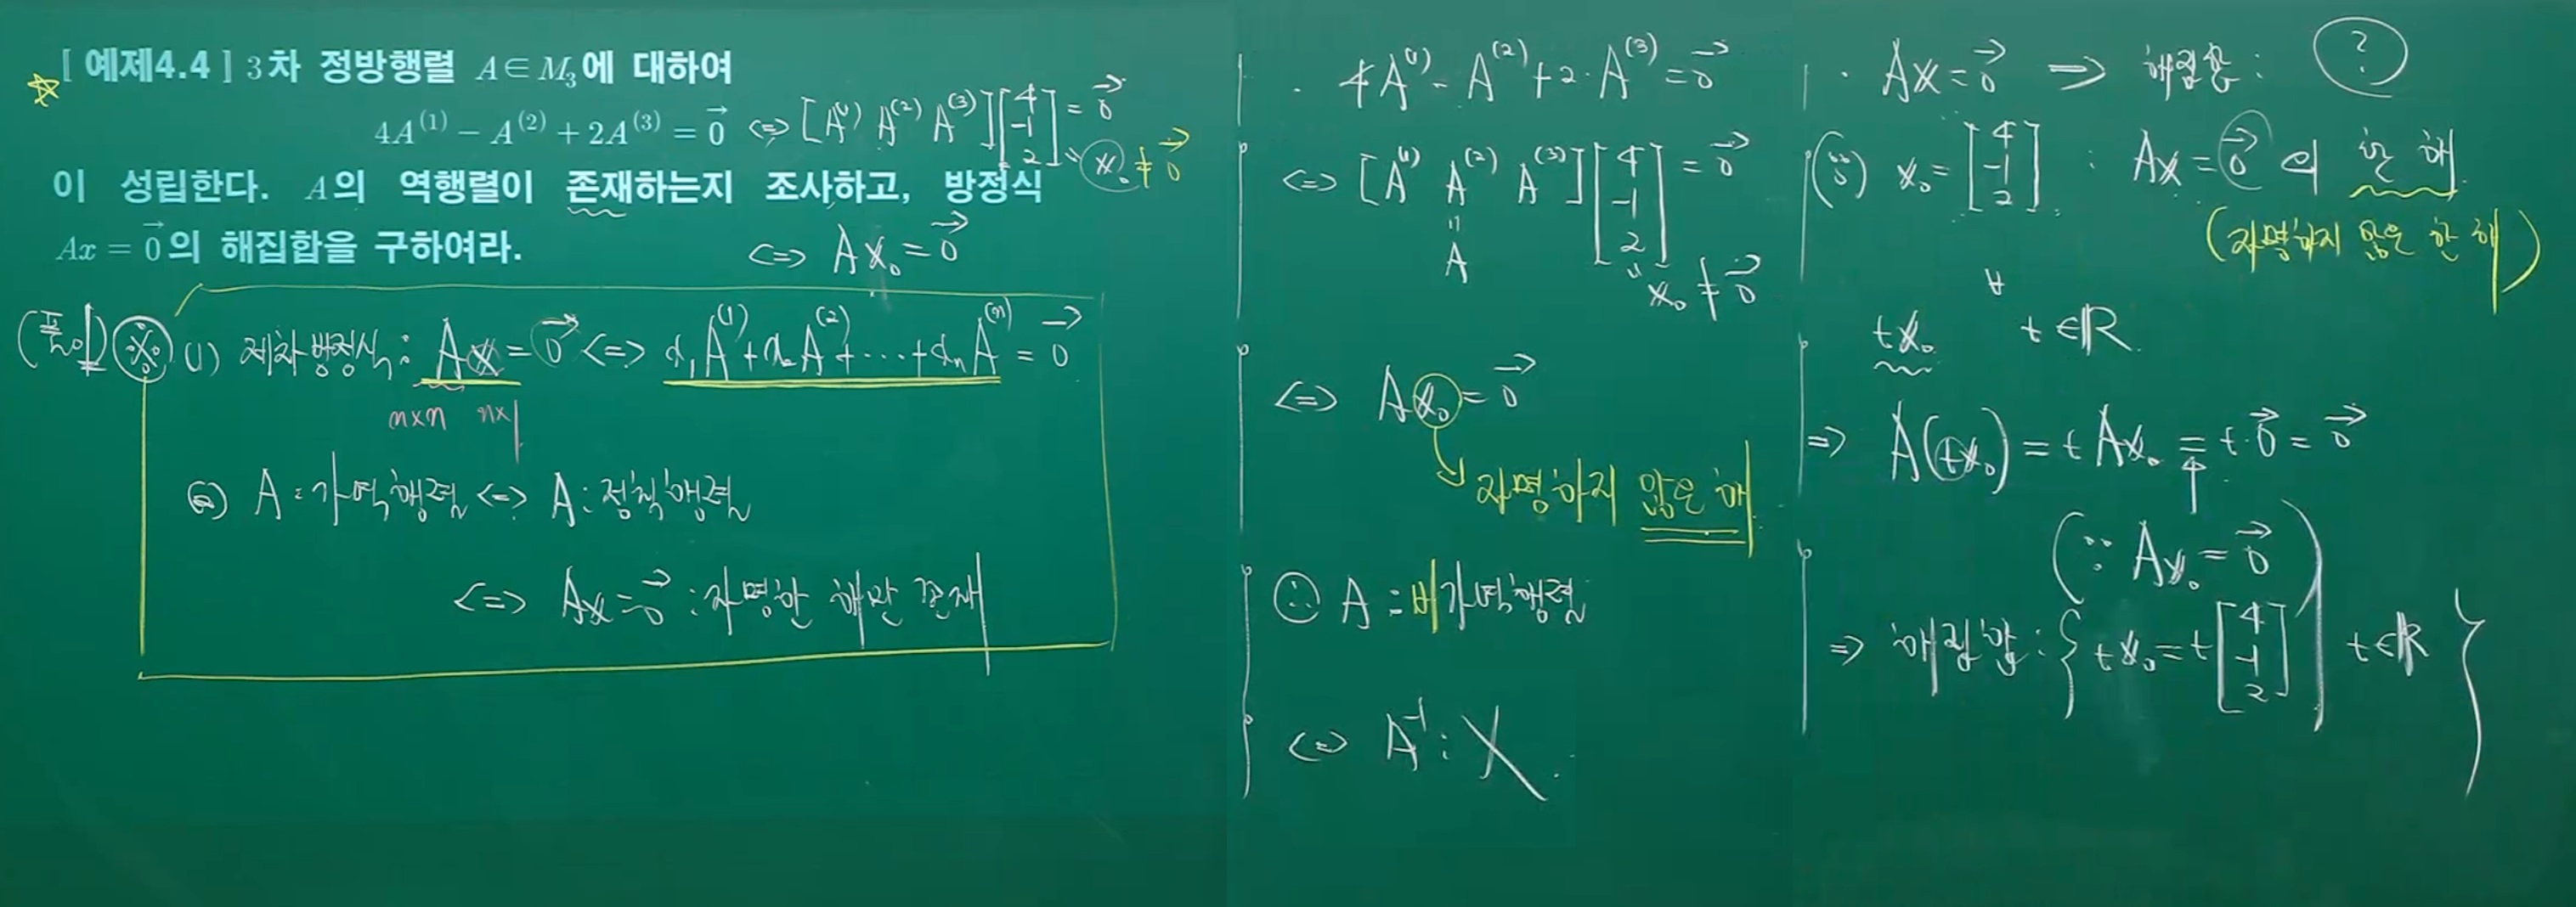 [ 예제4.4 ] 3차 정방행렬 A∈M₃에 대하여
4A⁽¹⁾ − A⁽²⁾ + 2A⁽³⁾ = 0⃗ <=> [A⁽¹⁾ A⁽²⁾ A⁽³⁾] [4 -1 2] = 0⃗
x₀ ≠ 0⃗
이 성립한다. A의 역행렬이 존재하는지 조사하고, 방정식
Ax = 0⃗의 해집합을 구하여라.
<=> Ax₀ = 0⃗
(풀이) ※ (1) 제차방정식 : Ax = 0⃗ <=> x₁A⁽¹⁾ + x₂A⁽²⁾ + ⋯ + xₙA⁽ⁿ⁾ = 0⃗
n×n n×1
(2) A : 가역행렬 <=> A : 정칙행렬
<=> Ax = 0⃗ : 자명한 해만 존재
· 4A⁽¹⁾ - A⁽²⁾ + 2·A⁽³⁾ = 0⃗
<=> [A⁽¹⁾ A⁽²⁾ A⁽³⁾] [4 -1 2] = 0⃗
"
A
" x₀ ≠ 0⃗
<=> Ax₀ = 0⃗
자명하지 않은 해
∴ A : 비가역행렬
<=> A⁻¹ : X
· Ax = 0⃗ => 해집합 : ?
(∵) x₀ = [4 -1 2] : Ax = 0⃗ 의 한 해
(자명하지 않은 한 해)
∀
tx₀ t∈R
=> A(tx₀) = tAx₀ = t·0⃗ = 0⃗
(∵ Ax₀ = 0⃗)
=> 해집합 : { tx₀ = t [4 -1 2] | t∈R }